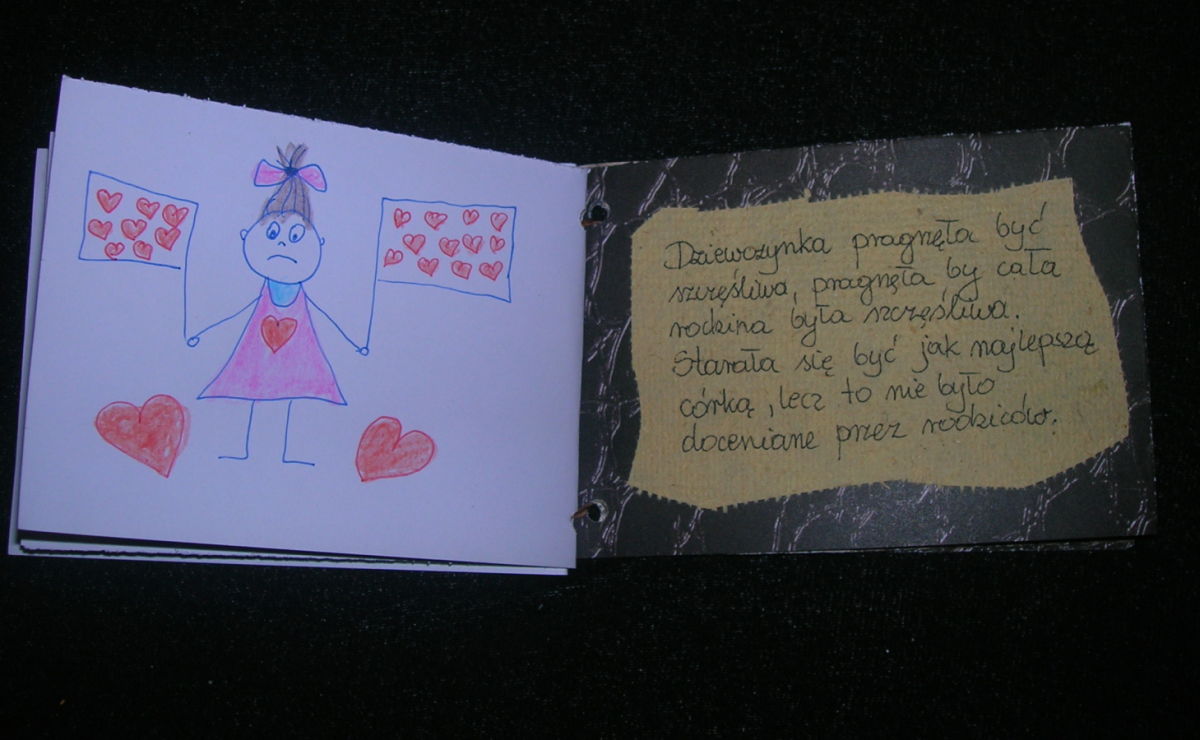 Dziewczynka pragnęła być
szczęśliwa, pragnęła by cała
rodzina była szczęśliwa.
Starała się być jak najlepszą
córką, lecz to nie było
doceniane przez rodziców.